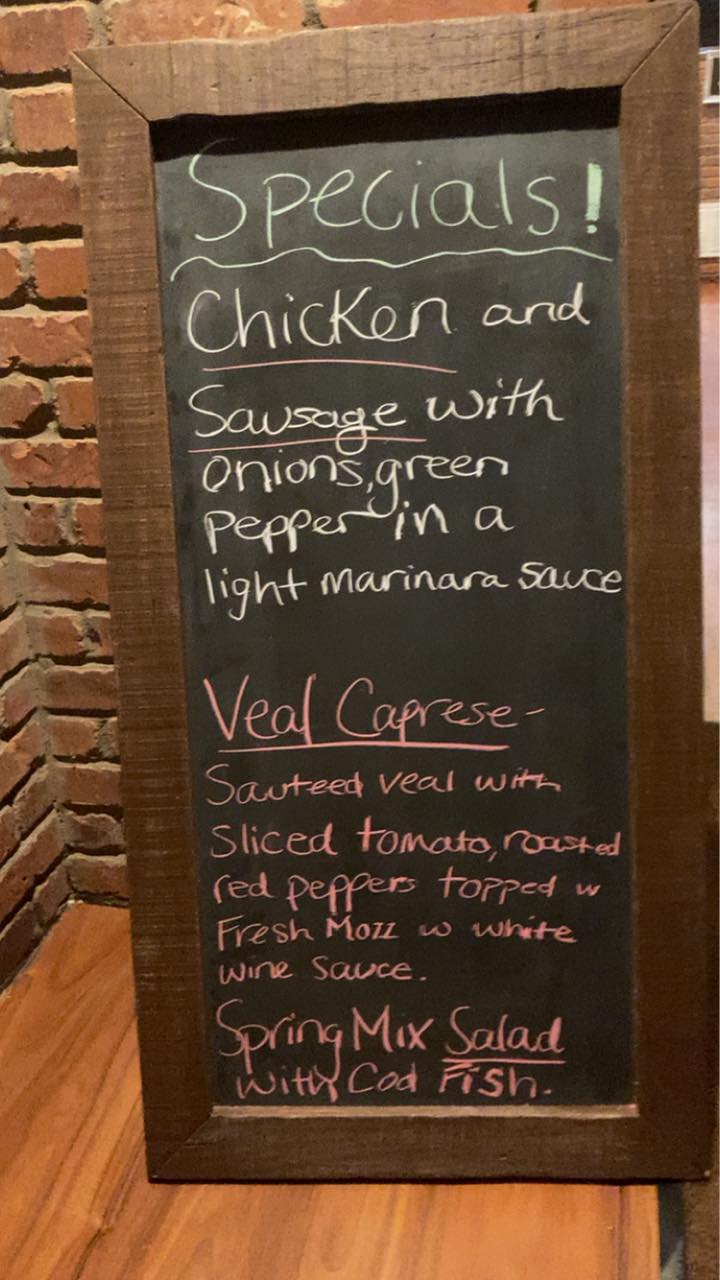 Specials!
Chicken and
Sausage with
onions, green
pepper in a
light marinara sauce
Veal Caprese-
Sauteed veal with
sliced tomato, roasted
red peppers topped w
Fresh Mozz w white
wine sauce.
Spring Mix Salad
with Cod Fish.